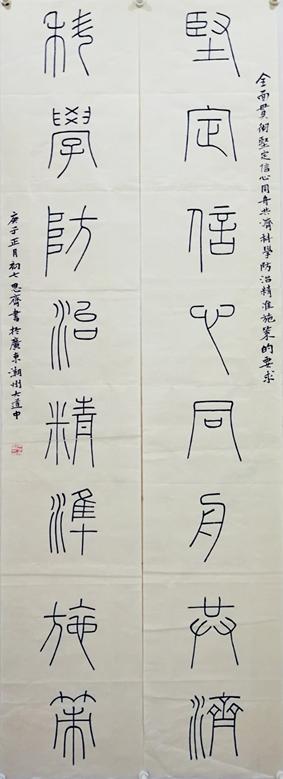 全面貫彻堅定信心同舟共濟科學防治精准施策的要求
堅定信心同舟共濟
科學防治精準施策
庚子正月初七思齊書於廣東潮州大道中